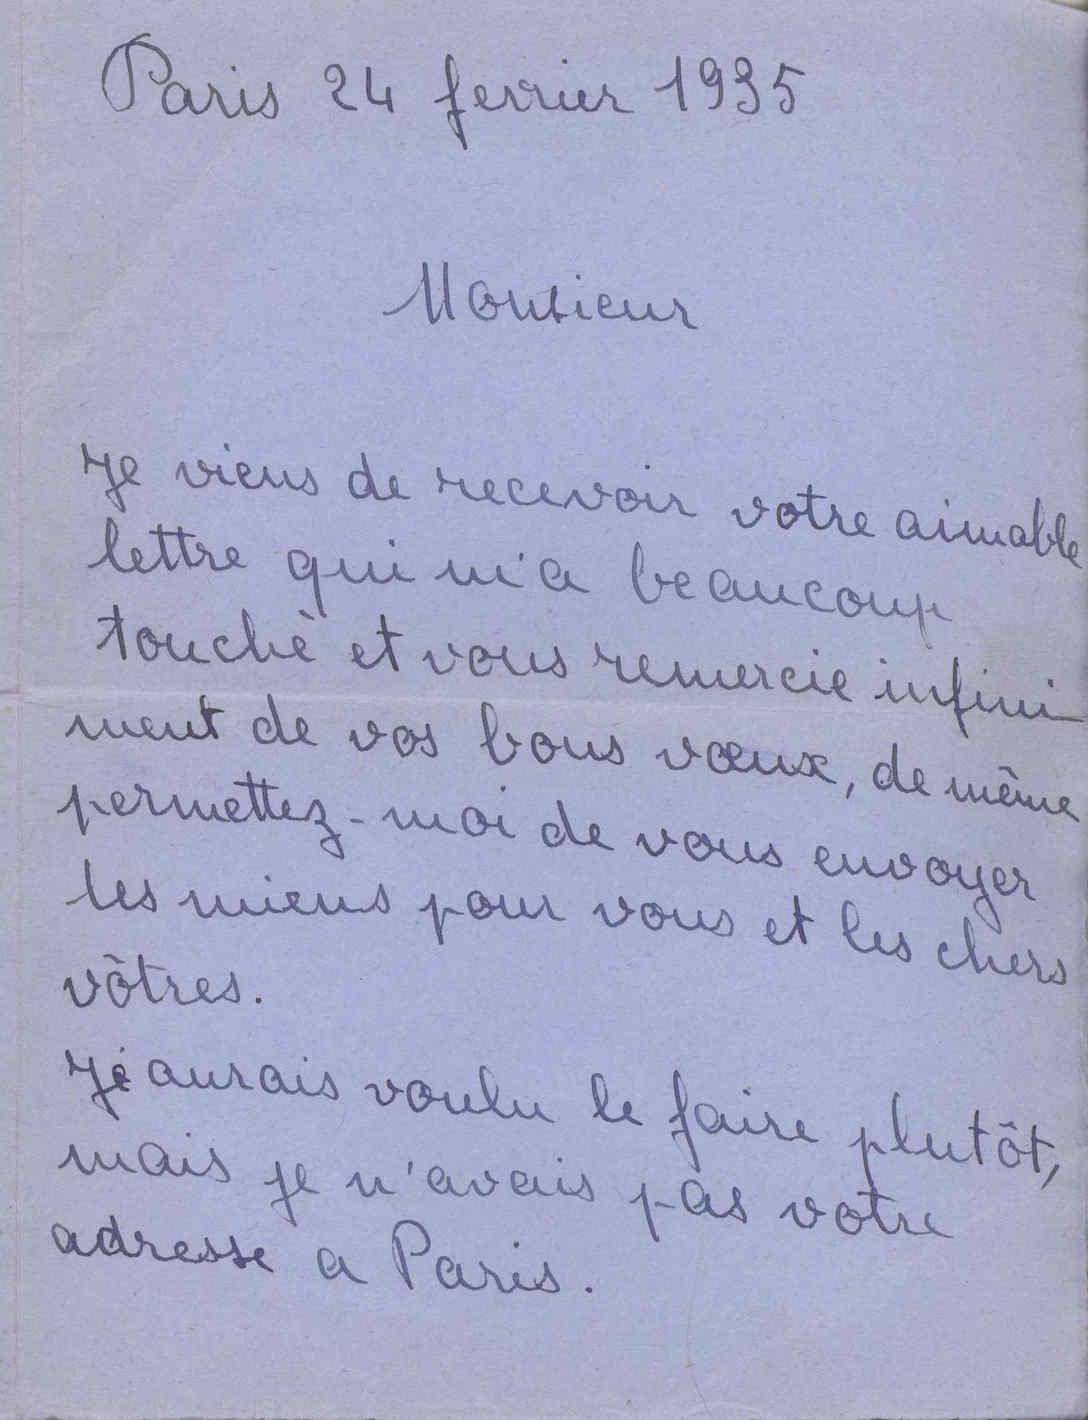 Paris 24 fevrier 1935
Monsieur
Je viens de recevoir votre aimable
lettre qui m'a beaucoup
touché et vous remercie infini-
ment de vos bons vœux, de même
permettez-moi de vous envoyer
les miens pour vous et les chers
vôtres.
J'aurais voulu le faire plutôt,
mais je n'avais pas votre
adresse a Paris.